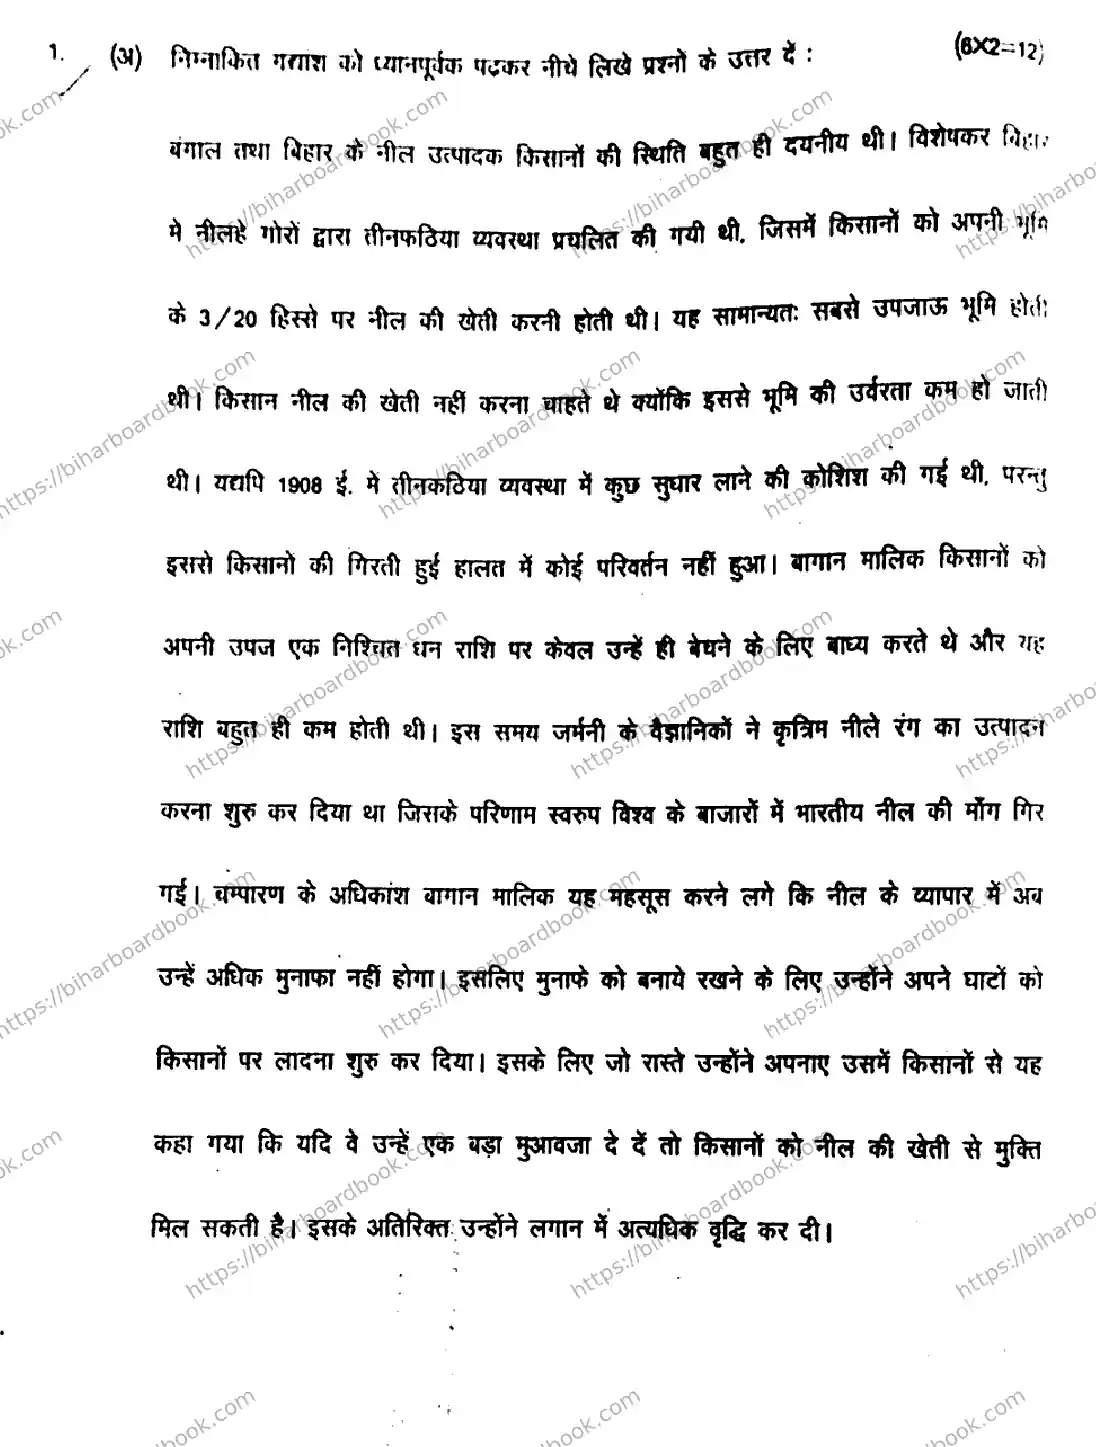 1. (अ) निम्नांकित गद्यांश को ध्यानपूर्वक पढ़कर नीचे लिखे प्रश्नों के उत्तर दें : (6X2=12)
बंगाल तथा बिहार के नील उत्पादक किसानों की स्थिति बहुत ही दयनीय थी। विशेषकर बिहार
मे नीलहे गोरों द्वारा तीनकठिया व्यवस्था प्रचलित की गयी थी, जिसमें किसानों को अपनी भूमि
के 3/20 हिस्से पर नील की खेती करनी होती थी। यह सामान्यतः सबसे उपजाऊ भूमि होती
थी। किसान नील की खेती नहीं करना चाहते थे क्योंकि इससे भूमि की उर्वरता कम हो जाती
थी। यद्यपि 1908 ई. मे तीनकठिया व्यवस्था में कुछ सुधार लाने की कोशिश की गई थी, परन्तु
इससे किसानों की गिरती हुई हालत में कोई परिवर्तन नहीं हुआ। बागान मालिक किसानों को
अपनी उपज एक निश्चित धन राशि पर केवल उन्हें ही बेचने के लिए बाध्य करते थे और यह
राशि बहुत ही कम होती थी। इस समय जर्मनी के वैज्ञानिकों ने कृत्रिम नीले रंग का उत्पादन
करना शुरु कर दिया था जिसके परिणाम स्वरुप विश्व के बाजारों में भारतीय नील की माँग गिर
गई। चम्पारण के अधिकांश बागान मालिक यह महसूस करने लगे कि नील के व्यापार में अब
उन्हें अधिक मुनाफा नहीं होगा। इसलिए मुनाफे को बनाये रखने के लिए उन्होंने अपने घाटों को
किसानों पर लादना शुरु कर दिया। इसके लिए जो रास्ते उन्होंने अपनाए उसमें किसानों से यह
कहा गया कि यदि वे उन्हें एक बड़ा मुआवजा दे दें तो किसानों को नील की खेती से मुक्ति
मिल सकती है। इसके अतिरिक्त उन्होंने लगान में अत्यधिक वृद्धि कर दी।